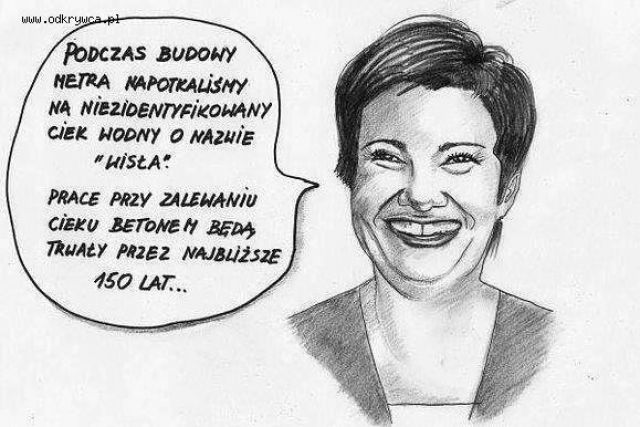 www.odkrywca.pl
PODCZAS BUDOWY
METRA NAPOTKALIŚMY
NA NIEZIDENTYFIKOWANY
CIEK WODNY O NAZWIE
"WISŁA".
PRACE PRZY ZALEWANIU
CIEKU BETONEM BĘDĄ
TRWAŁY PRZEZ NAJBLIŻSZE
150 LAT...